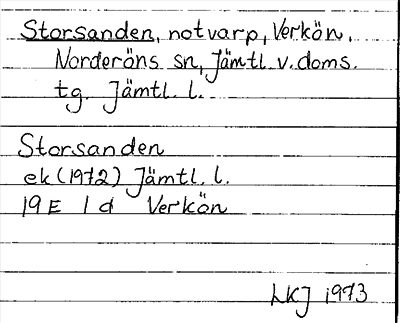 Storsanden, notvarp, Verkön.
Norderöns sn, Jämtl. v. doms.
tg. Jämtl. l.
Storsanden
ek (1972) Jämtl. l.
19E 1d Verkön
LKJ 1973